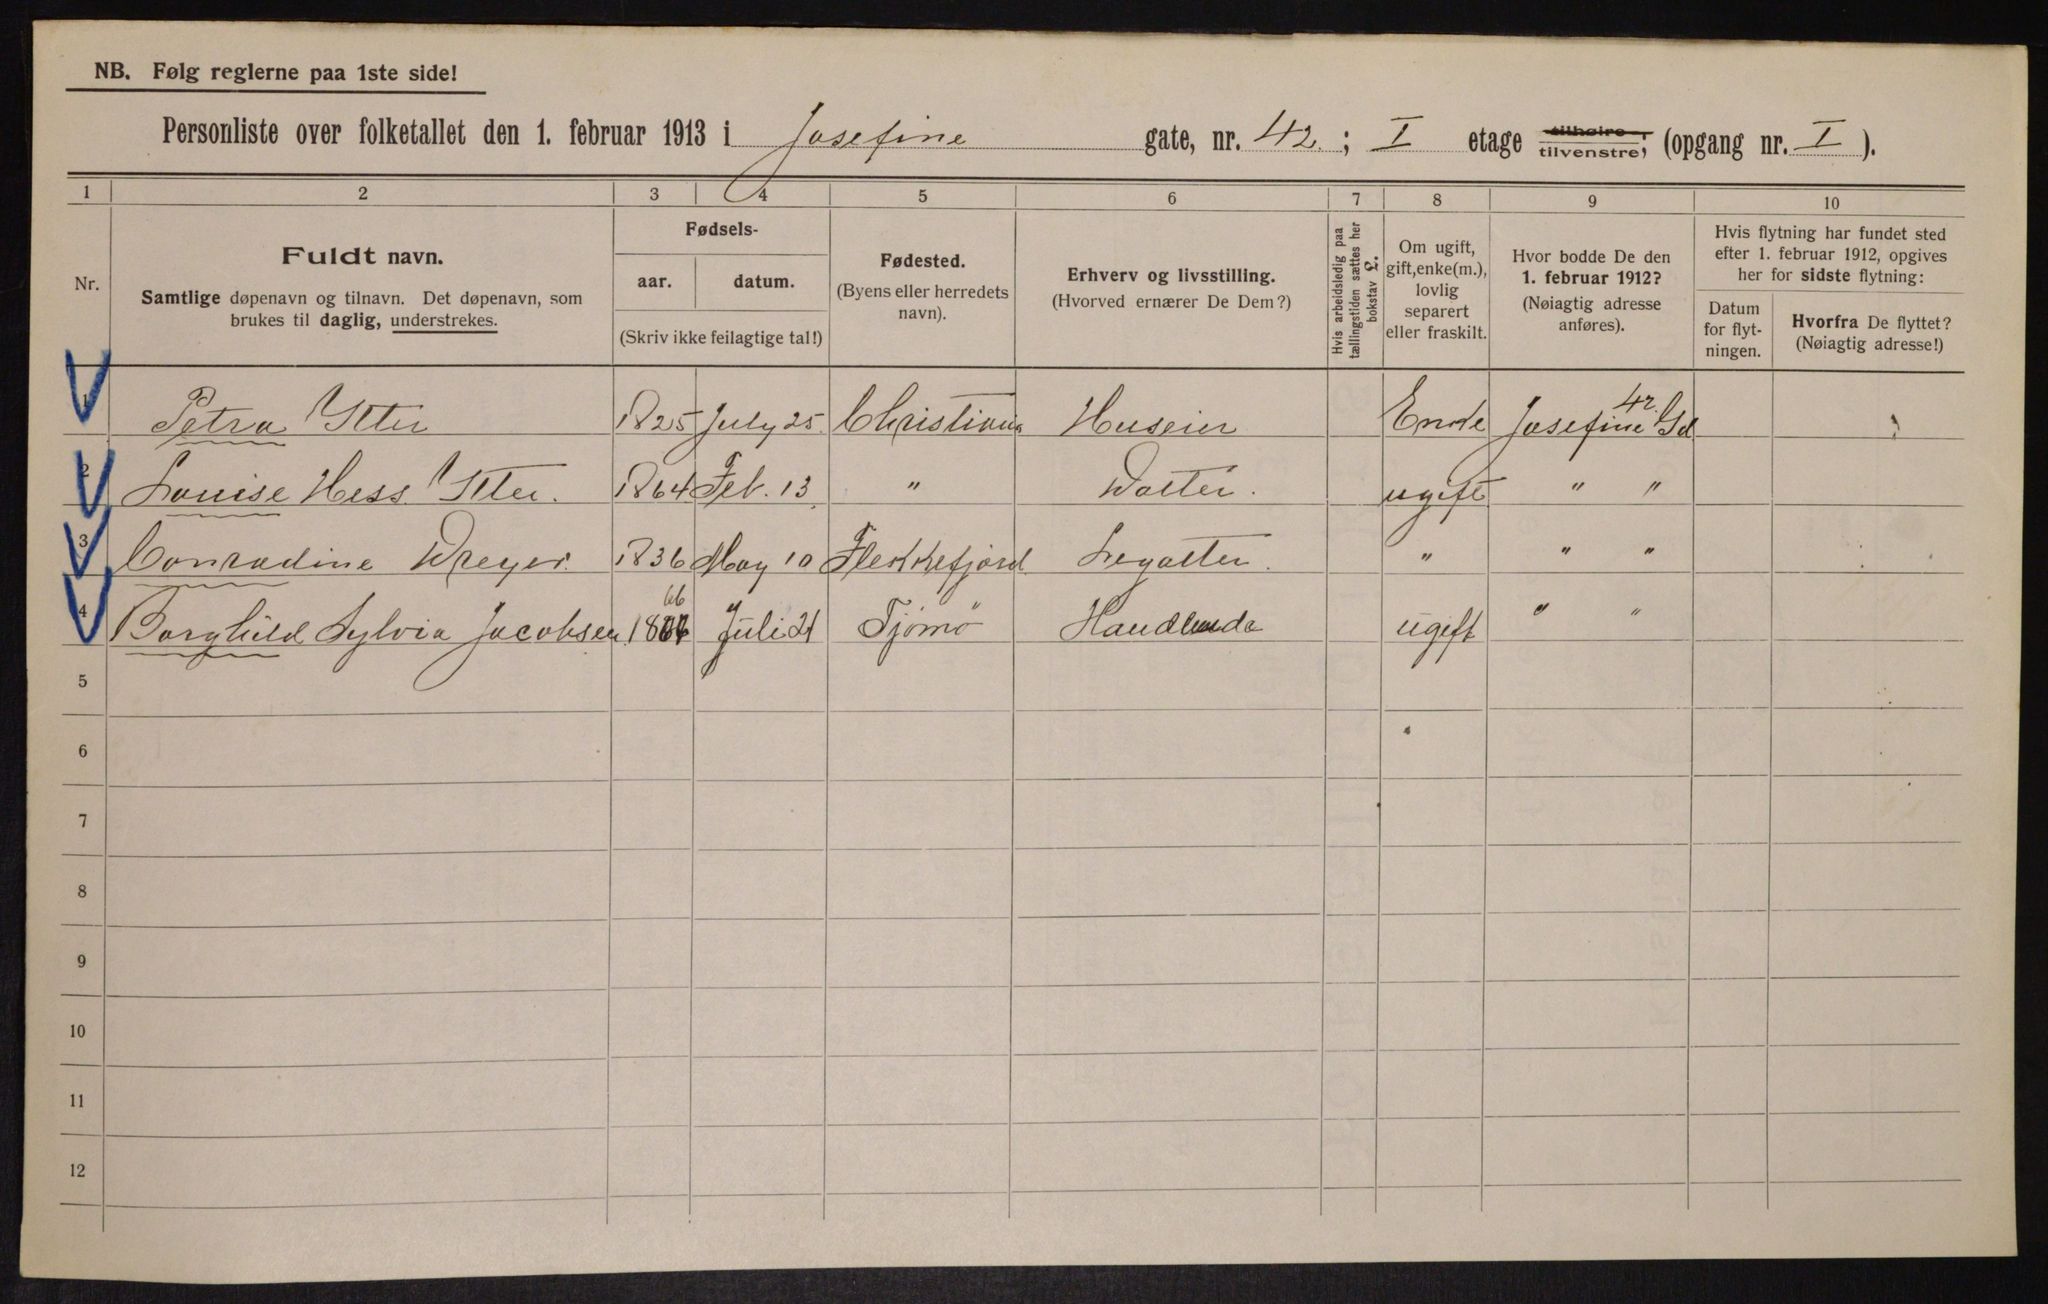 NB. Følg reglerne paa 1ste side!
Personliste over folketallet den 1. februar 1913 i Josefine gate, nr. 42. ; I etage tilhøire, tilvenstre, (opgang nr. I ).
1 2 3 4 5 6 7 8 9 10
Nr.
Fuldt navn.
Samtlige døpenavn og tilnavn. Det døpenavn, som
brukes til daglig, understrekes.
Fødsels-
aar. datum.
(Skriv ikke feilagtige tal!)
Fødested.
(Byens eller herredets
navn).
Erhverv og livsstilling.
(Hvorved ernærer De Dem?)
Hvis arbeidsledig paa
tællingstiden sættes her
bokstav L.
Om ugift,
gift, enke(m.),
lovlig
separert
eller fraskilt.
Hvor bodde De den
1. februar 1912?
(Nøiagtig adresse
anføres).
Hvis flytning har fundet sted
efter 1. februar 1912, opgives
her for sidste flytning:
Datum
for flyt-
ningen.
Hvorfra De flyttet?
(Nøiagtig adresse!)
1 Petra Ytter 1825 July 25 Christiania Huseier Enke Josefine 42 Gd
2 Louise Hess Ytter. 1864 Feb. 13 " Datter. ugift " "
3 Conradine Dreyer. 1836 May 10 Flekkefjord Legatter. " " "
4 Borghild Sylvia Jacobsen 1866 Juli 21 Tjømø ugift " "
5
6
7
8
9
10
11
12